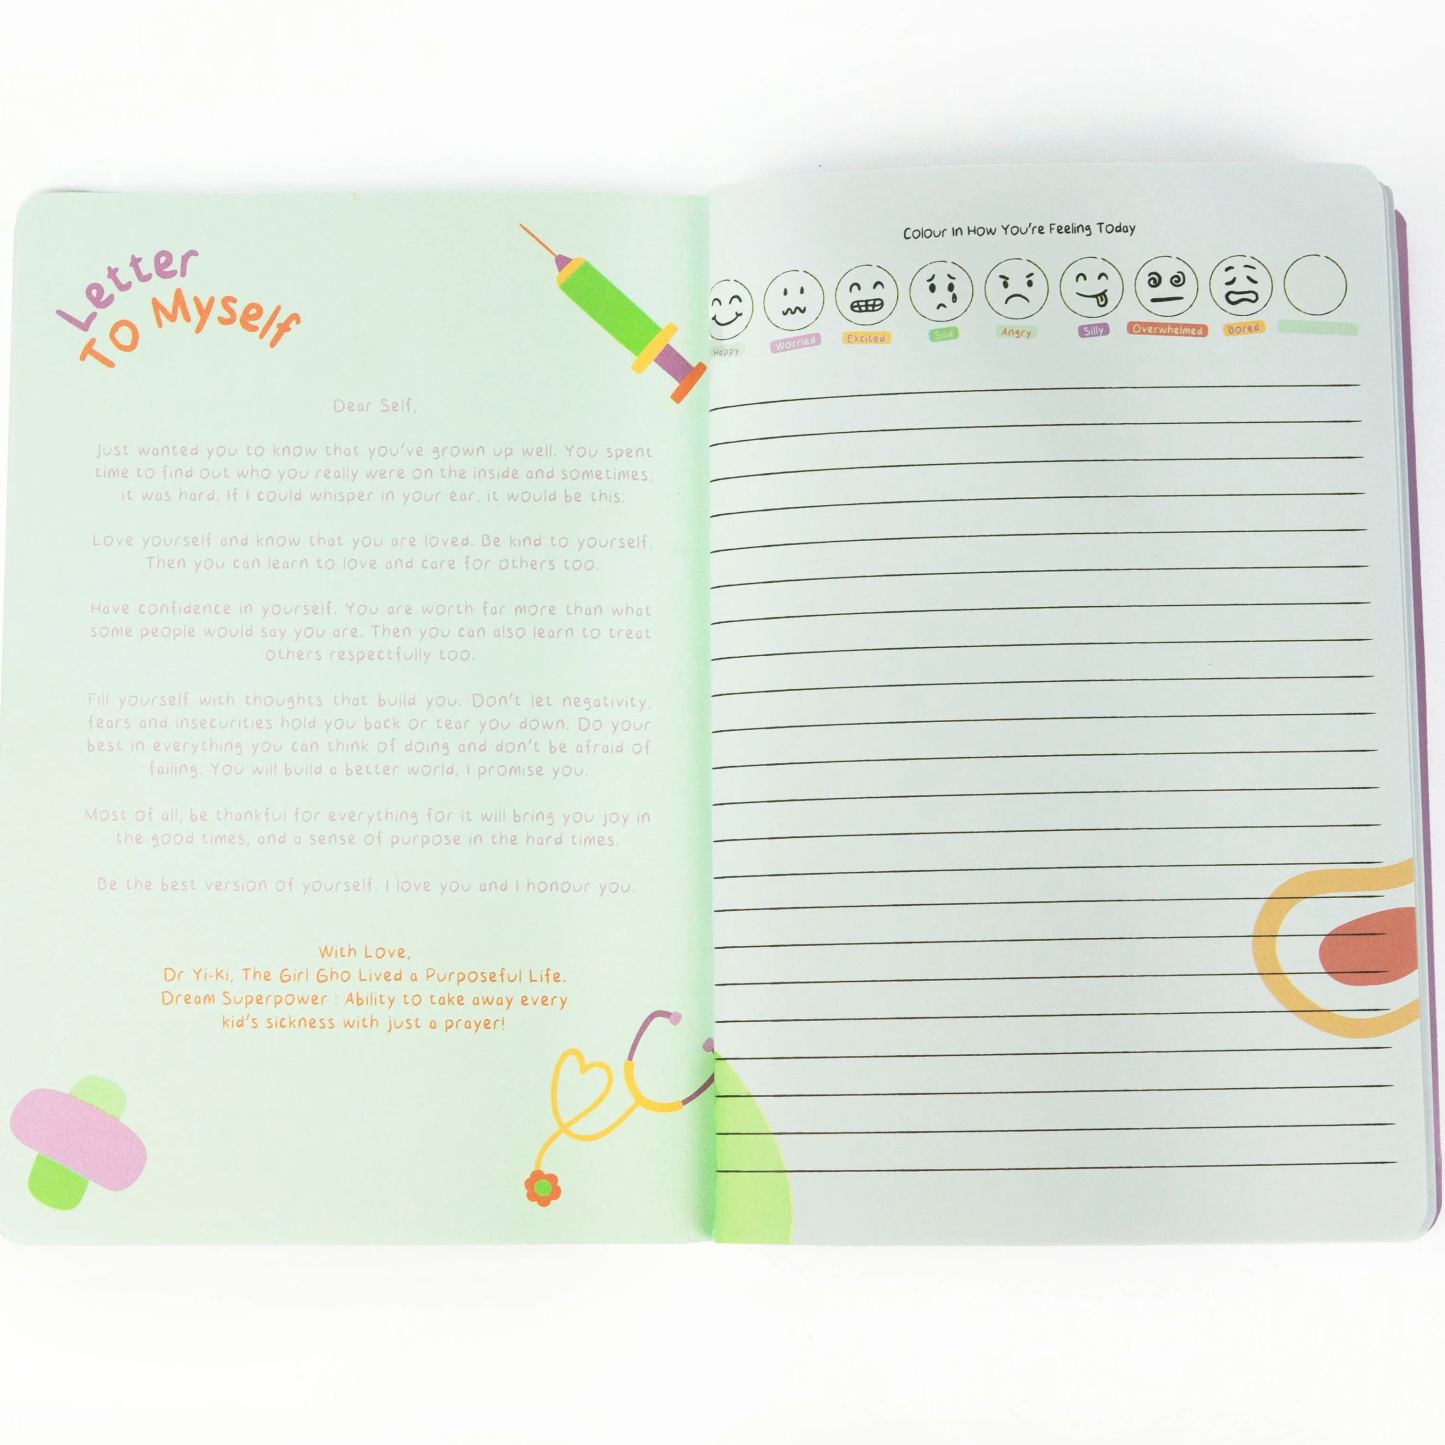 Letter
To Myself
Dear Self,
Just wanted you to know that you've grown up well. You spent
time to find out who you really were on the inside and sometimes,
it was hard. If I could whisper in your ear, it would be this:
Love yourself and know that you are loved. Be kind to yourself.
Then you can learn to love and care for others too.
Have confidence in yourself. You are worth far more than what
some people would say you are. Then you can also learn to treat
others respectfully too.
Fill yourself with thoughts that build you. Don't let negativity,
fears and insecurities hold you back or tear you down. Do your
best in everything you can think of doing and don't be afraid of
failing. You will build a better world, I promise you.
Most of all, be thankful for everything for it will bring you joy in
the good times, and a sense of purpose in the hard times.
Be the best version of yourself. I love you and I honour you.
With Love,
Dr Yi-Ki, The Girl Gho Lived a Purposeful Life.
Dream Superpower : Ability to take away every
kid's sickness with just a prayer!
Colour In How You're Feeling Today
Happy Worried Excited Sad Angry Silly Overwhelmed Bored